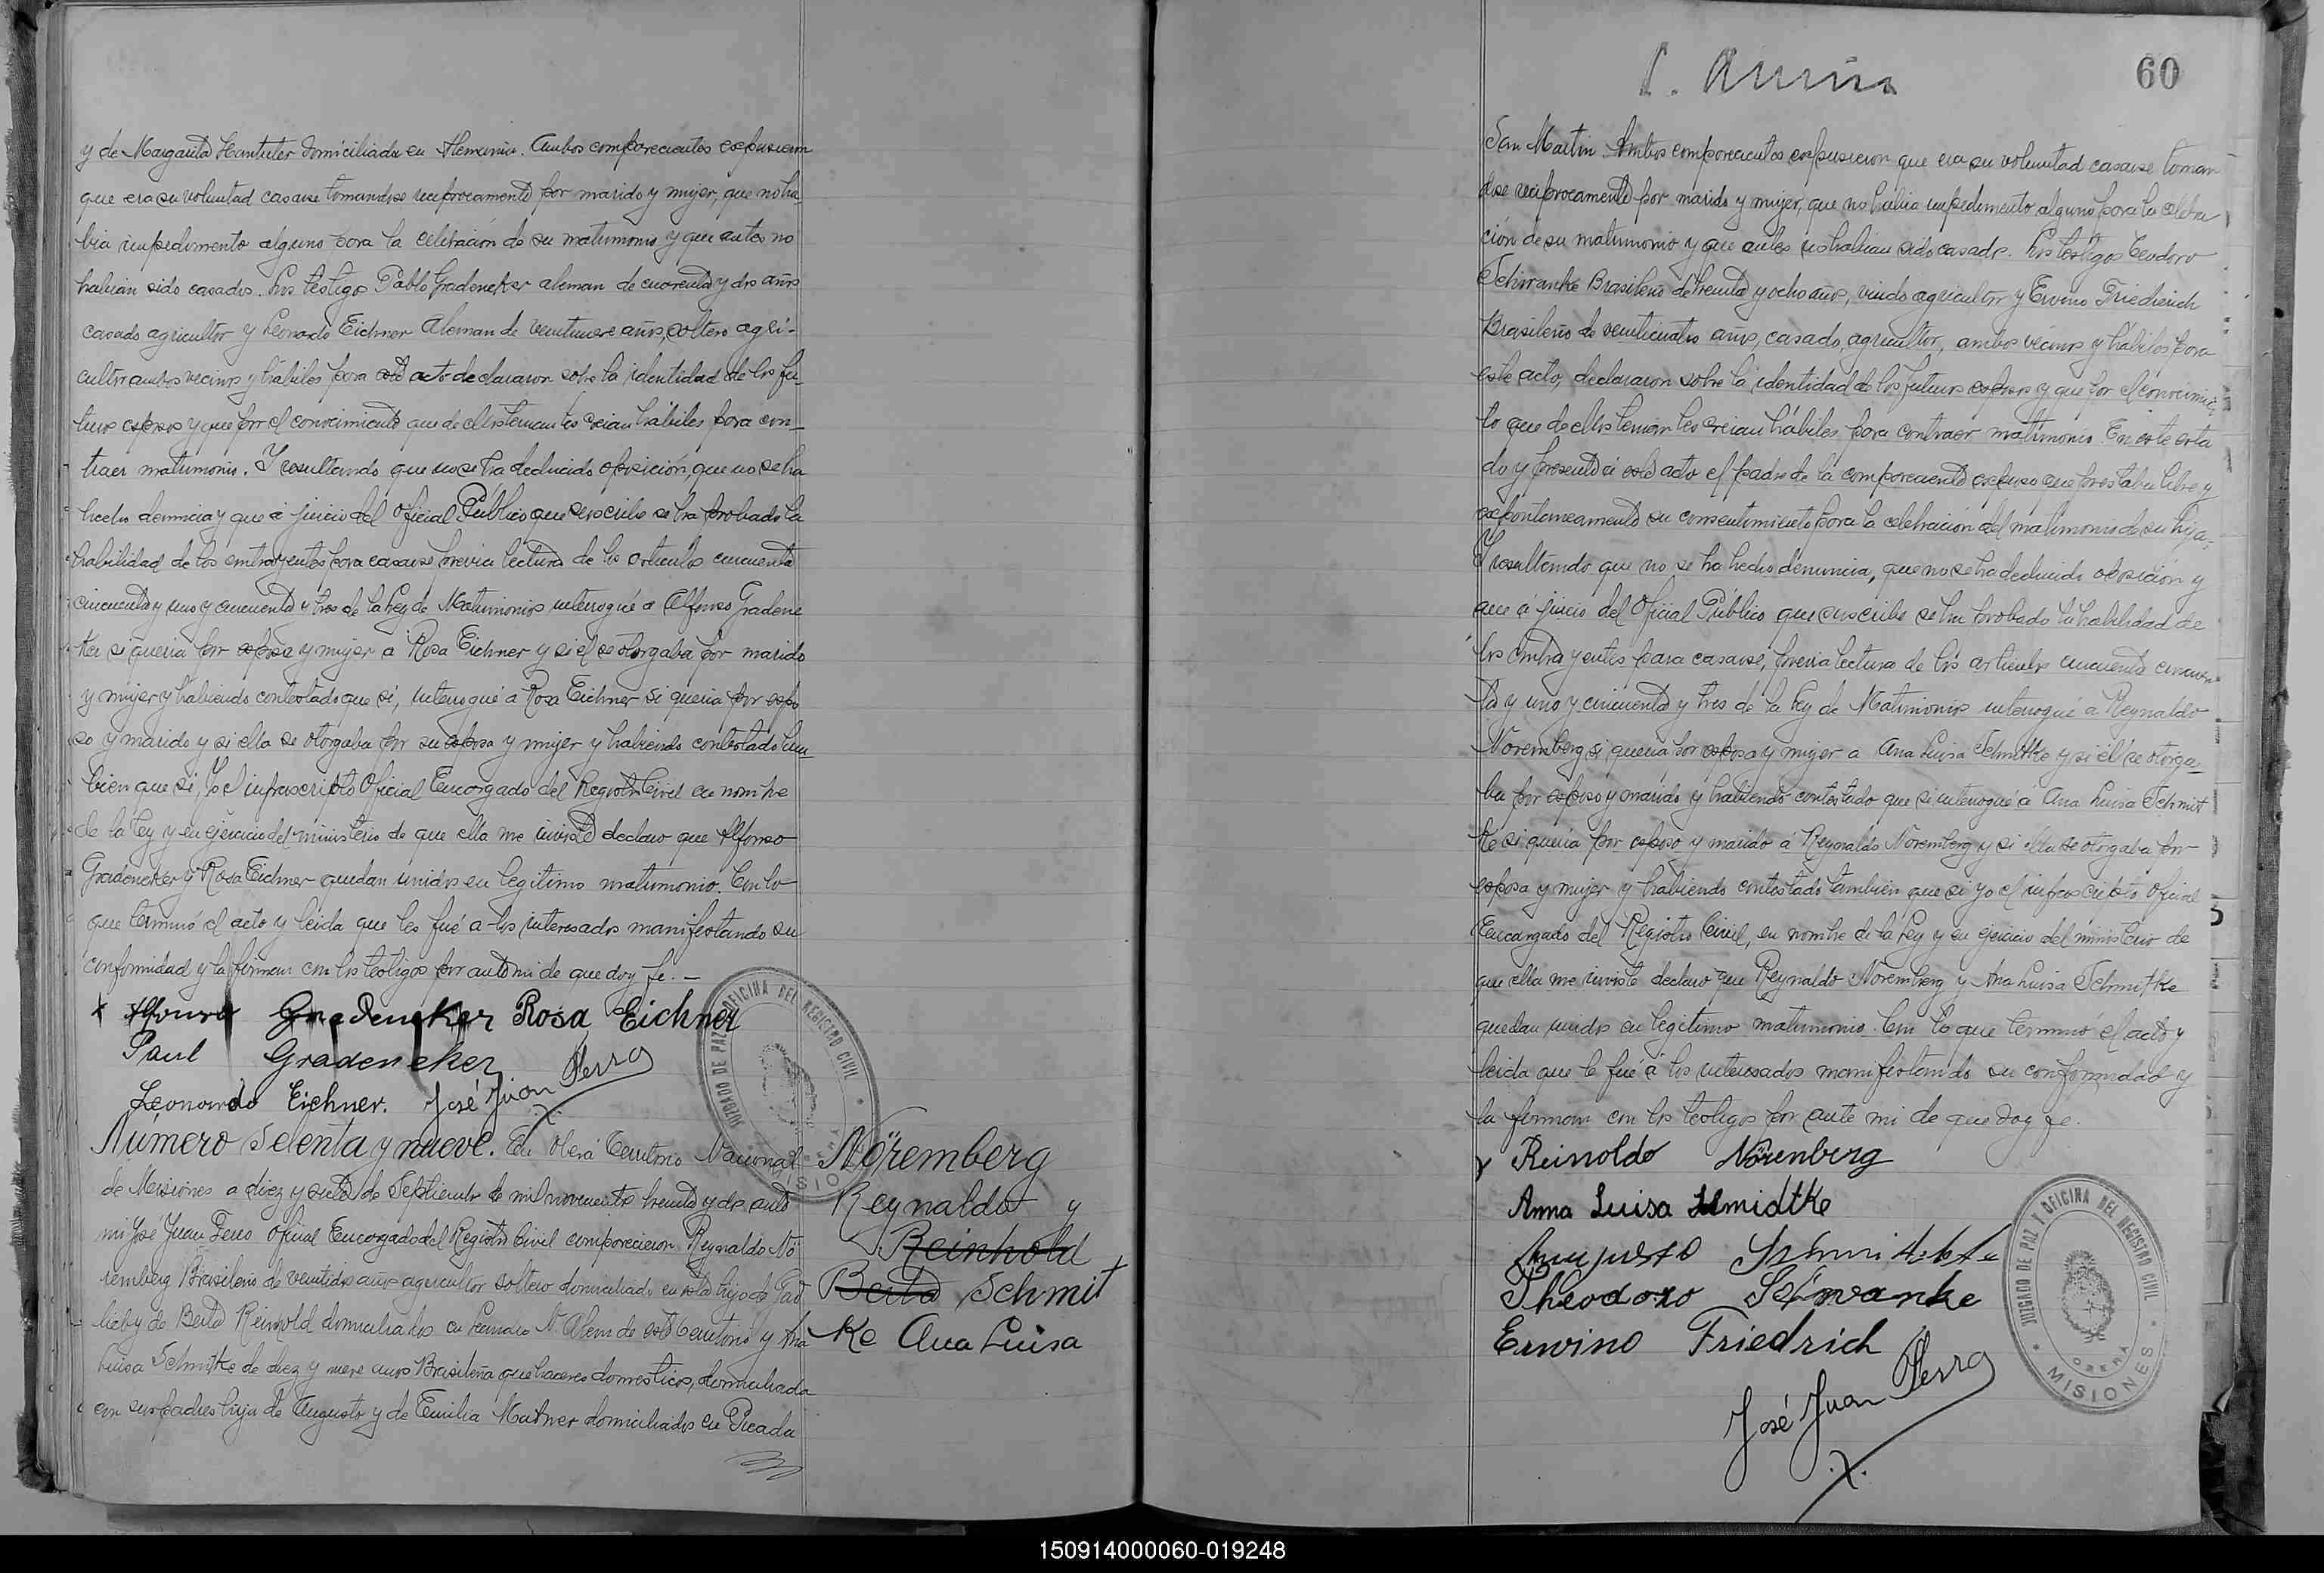 y de Margarita Hantuter domiciliada en Alemania. Ambos comparecientes expusieron
que era su voluntad casarse tomandose reciprocamente por marido y mujer, que no ha
bia impedimento alguno para la celebración de su matrimonio y que antes no
habian sido casados. Los testigos Pablo Gradeneker aleman de cuarenta y dos años
casado agricultor y Leonardo Eichner Aleman de veintinueve años, soltero agri-
cultor ambos vecinos y habiles para este acto declararon sobre la identidad de los fu-
turos esposos y que por el conocimiento que de ellos tenian los creian habiles para con-
traer matrimonio. Y resultando que no se ha deducido oposición, que no se ha
hecho denuncia y que á juicio del Oficial Público que suscribe se ha probado la
habilidad de los contrayentes para casarse previa lectura de los articulos cincuenta
cincuenta y uno y cincuenta y tres de la Ley de Matrimonios interrogué a Alfonso Gradene
ker si queria por esposa y mujer a Rosa Eichner y si el se otorgaba por marido
y mujer y habiendo contestado que si, interrogué a Rosa Eichner si queria por espo
so y marido y si ella se otorgaba por su esposa y mujer y habiendo contestado tam-
bien que si, Yo el infrascripto Oficial Encargado del Registro Civil en nombre
de la Ley y en ejercicio del ministerio de que ella me inviste declaro que Alfonso
Gradeneker y Rosa Eichner quedan unidos en legitimo matrimonio. Con lo
que terminó el acto y leida que les fué a los interesados manifestando su
conformidad y la firman con los testigos por ante mi de que doy fe. -
x Alfonso Gradeneker Rosa Eichner
Paul Gradeneker
Leonardo Eichner. José Juan Perro
JUZGADO DE PAZ Y OFICINA DEL REGISTRO CIVIL
MISIONES
Número Setenta y nueve. En Oberá Territorio Nacional
de Misiones a diez y siete de Septiembre de mil novecientos treinta y dos ante
mi José Juan Perro Oficial Encargado del Registro Civil comparecieron Reynaldo Nö
remberg Brasileño de veintidos años agricultor soltero domiciliado en esta hijo de Got
lieb y de Berta Reinhold domiciliados en Leandro N. Alem de este Territorio y Ana
Luisa Schmitke de diez y nueve años Brasileña quehaceres domesticos, domiciliada
con sus padres hija de Augusto y de Emilia Matner domiciliados en Picada
Nöremberg
Reynaldo y
Reinhold
Berta Schmit
ke Ana Luisa
60
San Martin. Ambos comparecientes expusieron que era su voluntad casarse toman
dose reciprocamente por marido y mujer, que no habia impedimento alguno para la celebra
ción de su matrimonio y que antes no habian sido casados. Los testigos Teodoro
Schwanke Brasileño de treinta y ocho años, viudo agricultor y Erwino Friedrich
Brasileño de veinticuatro años, casado, agricultor, ambos vecinos y hábiles para
este acto, declararon sobre la identidad de los futuros esposos y que por el conocimien
to que de ellos tenian los creian hábiles para contraer matrimonio. En este esta
do y presente á este acto el padre de la compareciente expuso que prestaba libre y
espontaneamente su consentimiento para la celebración del matrimonio de su hija.
Y resultando que no se ha hecho denuncia, que no se ha deducido oposición y
que á juicio del Oficial Público que suscribe se ha probado la habilidad de
los contrayentes para casarse, previa lectura de los articulos cincuenta cincuen
ta y uno y cincuenta y tres de la Ley de Matrimonios interrogué a Reynaldo
Noremberg si queria por esposa y mujer a Ana Luisa Schmitke y si él se otorga-
ba por esposo y marido y habiendo contestado que si interrogué á Ana Luisa Schmit
ke si queria por esposo y marido á Reynaldo Noremberg y si ella se otorgaba por
esposa y mujer y habiendo contestado también que si yo el infrascripto Oficial
Encargado del Registro Civil, en nombre de la Ley y en ejercicio del ministerio de
que ella me inviste declaro que Reynaldo Noremberg y Ana Luisa Schmitke
quedan unidos en legitimo matrimonio. Con lo que terminó el acto y
leida que le fué á los interesados manifestando su conformidad y
la firman con los testigos por ante mi de que doy fe.
Reinoldo Nörenberg
Anna Luisa Schmidtke
Augusto
Theodoro Schwanke
Erwino Friedrich
José Juan Perro
JUZGADO DE PAZ Y OFICINA DEL REGISTRO CIVIL
OBERA
MISIONES
150914000060-019248